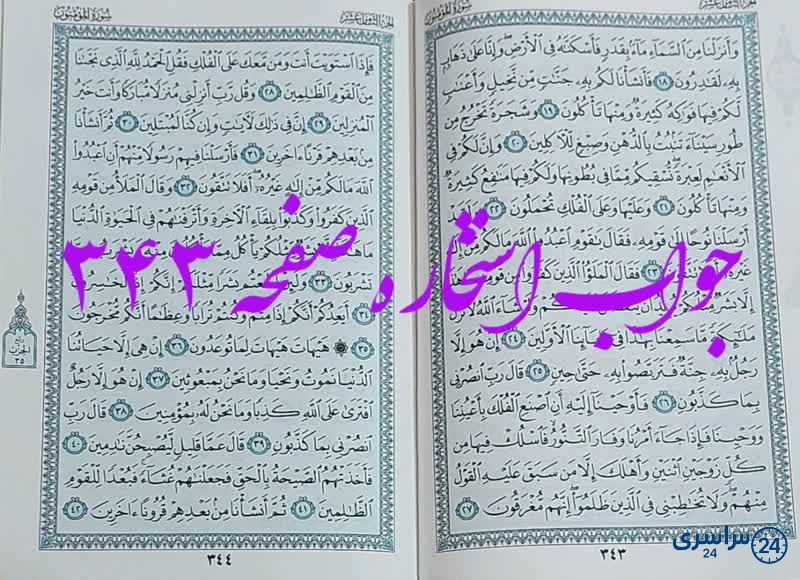 الجزء الثامن عشر
سورة المؤمنون
وَأَنزَلْنَا مِنَ السَّمَاءِ مَاءً بِقَدَرٍ فَأَسْكَنَّاهُ فِي الْأَرْضِ وَإِنَّا عَلَىٰ ذَهَابٍ
بِهِ لَقَادِرُونَ ١٨ فَأَنشَأْنَا لَكُم بِهِ جَنَّاتٍ مِّن نَّخِيلٍ وَأَعْنَابٍ
لَّكُمْ فِيهَا فَوَاكِهُ كَثِيرَةٌ وَمِنْهَا تَأْكُلُونَ ١٩ وَشَجَرَةً تَخْرُجُ مِن
طُورِ سَيْنَاءَ تَنبُتُ بِالدُّهْنِ وَصِبْغٍ لِّلْآكِلِينَ ٢٠ وَإِنَّ لَكُمْ فِي
الْأَنْعَامِ لَعِبْرَةً نُّسْقِيكُم مِّمَّا فِي بُطُونِهَا وَلَكُمْ فِيهَا مَنَافِعُ كَثِيرَةٌ
وَمِنْهَا تَأْكُلُونَ ٢١ وَعَلَيْهَا وَعَلَى الْفُلْكِ تُحْمَلُونَ ٢٢ وَلَقَدْ
أَرْسَلْنَا نُوحًا إِلَىٰ قَوْمِهِ فَقَالَ يَا قَوْمِ اعْبُدُوا اللَّهَ مَا لَكُم مِّنْ إِلَٰهٍ
غَيْرُهُ ٢٣ فَقَالَ الْمَلَأُ الَّذِينَ كَفَرُوا مِن قَوْمِهِ
إِلَّا بَشَرٌ مِّثْلُكُمْ يُرِيدُ أَن عَلَيْكُمْ وَلَوْ شَاءَ اللَّهُ لَأَنزَلَ
مَلَائِكَةً مَّا سَمِعْنَا بِهَٰذَا فِي آبَائِنَا الْأَوَّلِينَ ٢٤ إِنْ هُوَ إِلَّا
رَجُلٌ بِهِ جِنَّةٌ فَتَرَبَّصُوا بِهِ حَتَّىٰ حِينٍ ٢٥ قَالَ رَبِّ انصُرْنِي
بِمَا كَذَّبُونِ ٢٦ فَأَوْحَيْنَا إِلَيْهِ أَنِ اصْنَعِ الْفُلْكَ بِأَعْيُنِنَا
وَوَحْيِنَا فَإِذَا جَاءَ أَمْرُنَا وَفَارَ التَّنُّورُ فَاسْلُكْ فِيهَا مِن
كُلٍّ زَوْجَيْنِ اثْنَيْنِ وَأَهْلَكَ إِلَّا مَن سَبَقَ عَلَيْهِ الْقَوْلُ
مِنْهُمْ وَلَا تُخَاطِبْنِي فِي الَّذِينَ ظَلَمُوا إِنَّهُم مُّغْرَقُونَ ٢٧
٣٤٣
الجزء الثامن عشر
سورة المؤمنون
فَإِذَا اسْتَوَيْتَ أَنتَ وَمَن مَّعَكَ عَلَى الْفُلْكِ فَقُلِ الْحَمْدُ لِلَّهِ الَّذِي نَجَّانَا
مِنَ الْقَوْمِ الظَّالِمِينَ ٢٨ وَقُل رَّبِّ أَنزِلْنِي مُنزَلًا مُّبَارَكًا وَأَنتَ خَيْرُ
الْمُنزِلِينَ ٢٩ إِنَّ فِي ذَٰلِكَ لَآيَاتٍ وَإِن كُنَّا لَمُبْتَلِينَ ٣٠ ثُمَّ أَنشَأْنَا
مِن بَعْدِهِمْ قَرْنًا آخَرِينَ ٣١ فَأَرْسَلْنَا فِيهِمْ رَسُولًا مِّنْهُمْ أَنِ اعْبُدُوا
اللَّهَ مَا لَكُم مِّنْ إِلَٰهٍ غَيْرُهُ أَفَلَا تَتَّقُونَ ٣٢ وَقَالَ الْمَلَأُ مِن قَوْمِهِ
الَّذِينَ كَفَرُوا وَكَذَّبُوا بِلِقَاءِ الْآخِرَةِ وَأَتْرَفْنَاهُمْ فِي الْحَيَاةِ الدُّنْيَا
مَا هَٰذَا مِّثْلُكُمْ يَأْكُلُ مِمَّا مِنْهُ وَيَشْرَبُ مِمَّا
تَشْرَبُونَ ٣٣ وَلَئِنْ أَطَعْتُم بَشَرًا مِّثْلَكُمْ إِنَّكُمْ إِذًا لَّخَاسِرُونَ
٣٤ أَيَعِدُكُمْ أَنَّكُمْ إِذَا مِتُّمْ وَكُنتُمْ تُرَابًا وَعِظَامًا أَنَّكُم مُّخْرَجُونَ
٣٥ ۞ هَيْهَاتَ هَيْهَاتَ لِمَا تُوعَدُونَ ٣٦ إِنْ هِيَ إِلَّا حَيَاتُنَا
الدُّنْيَا نَمُوتُ وَنَحْيَا وَمَا نَحْنُ بِمَبْعُوثِينَ ٣٧ إِنْ هُوَ إِلَّا رَجُلٌ
افْتَرَىٰ عَلَى اللَّهِ كَذِبًا وَمَا نَحْنُ لَهُ بِمُؤْمِنِينَ ٣٨ قَالَ رَبِّ
انصُرْنِي بِمَا كَذَّبُونِ ٣٩ قَالَ عَمَّا قَلِيلٍ لَّيُصْبِحُنَّ نَادِمِينَ ٤٠
فَأَخَذَتْهُمُ الصَّيْحَةُ بِالْحَقِّ فَجَعَلْنَاهُمْ غُثَاءً فَبُعْدًا لِّلْقَوْمِ
الظَّالِمِينَ ٤١ ثُمَّ أَنشَأْنَا مِن بَعْدِهِمْ قُرُونًا آخَرِينَ ٤٢
٣٤٤
ربع
الحزب
٣٥
جواب استخاره صفحه ۳۴۳
سراسری 24
24